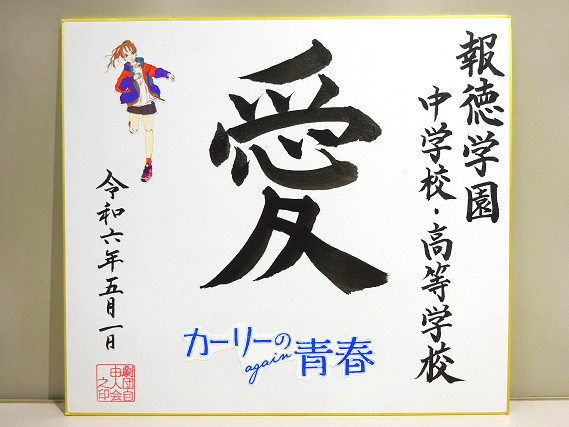 報徳学園
中学校・高等学校
愛
カーリーの
again
青春
令和六年五月一日
劇団自
由人会
之印